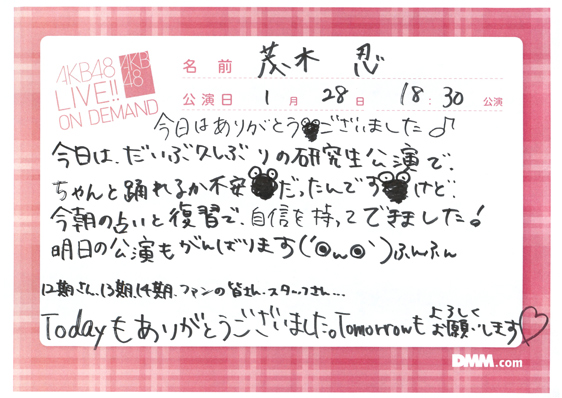 AKB48
LIVE!!
ON DEMAND
AKB
48
名前 茂木 忍
公演日 1月 28日 18:30 公演
今日はありがとうございました♪
今日は、だいぶ久しぶりの研究生公演で、
ちゃんと踊れるか不安だったんですけど、
今朝の占いと復習で、自信を持ってできました!
明日の公演もがんばります(´◉ω◉`)ふんふん
12期さん、13期、14期、ファンの皆さん、スタッフさん...
Todayもありがとうございました。Tomorrowもよろしくお願いします♡
DMM.com